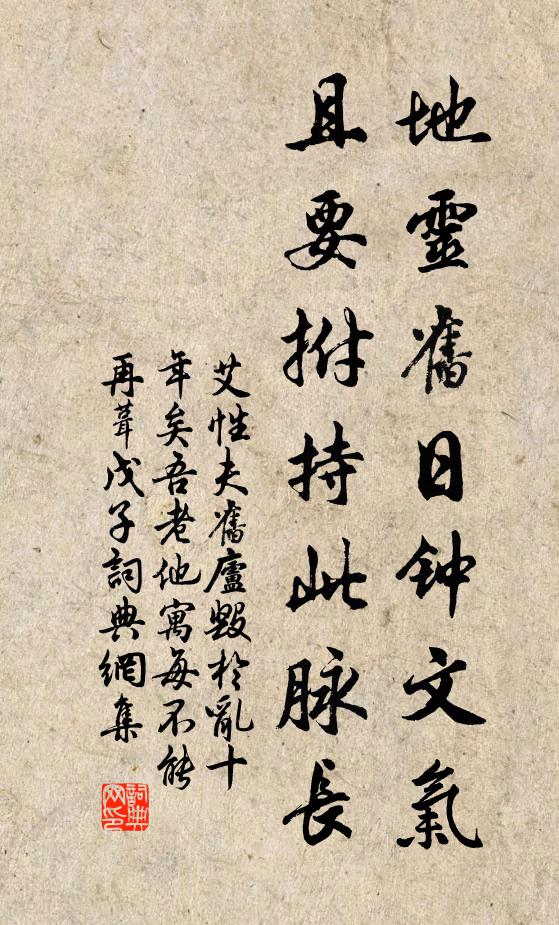 地靈舊日钟文氣
且要拊持此脉長
艾性夫舊廬毀於亂十
年矣吾老他寓每不能
再葺戊子詞典網集
詞典网印